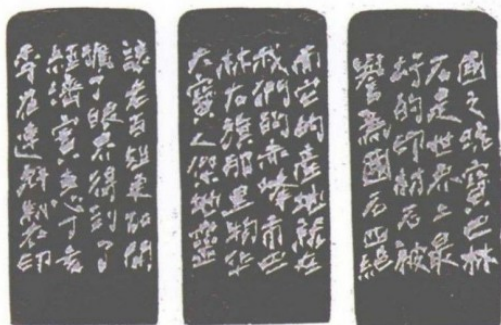 國之瑰寶巴林
石是世界上最
好的印材石被
譽為國石四絕
而它的產地就在
我們的赤峰市巴
林右旗那里物华
天寶人傑地靈
讓老百姓更加開
了眼界得到了
經濟實惠丁亥
石印